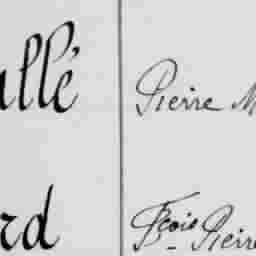 allé Pierre M
rd Fçois Pierre